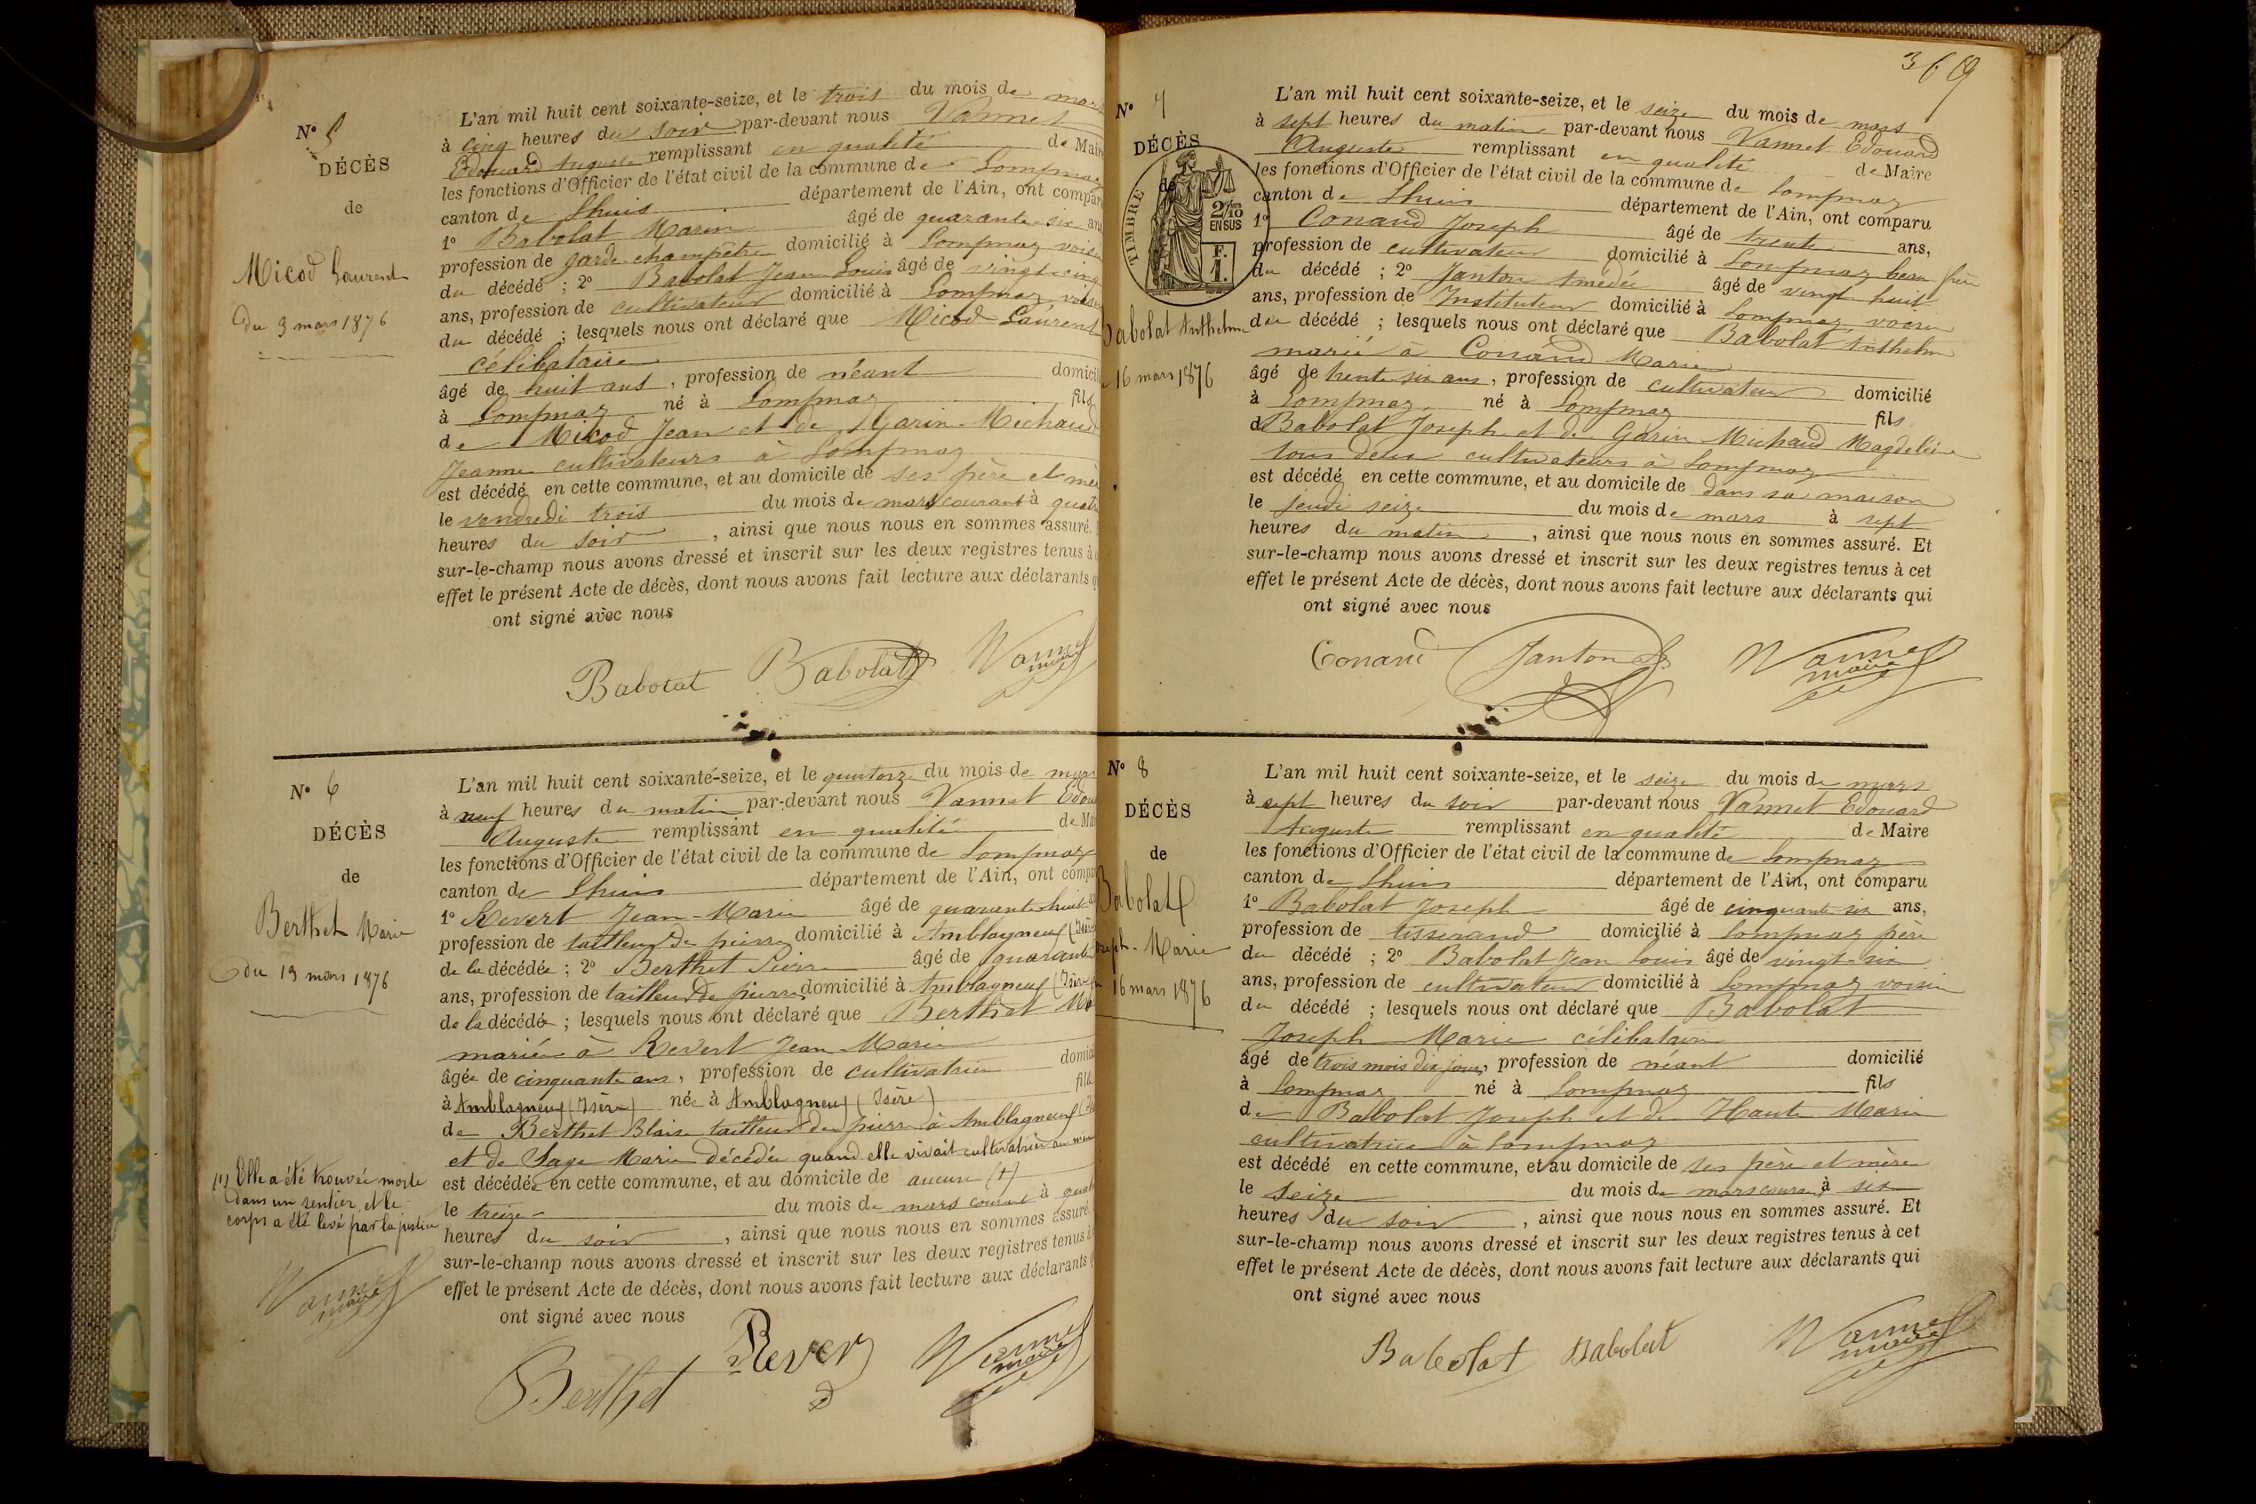 N° 5
DÉCÈS
de
Micod Laurent
Du 3 mars 1876
L'an mil huit cent soixante-seize, et le trois du mois de mars
à cinq heures du soir par-devant nous Vannet
Edouard Auguste remplissant en qualité de Maire
les fonctions d'Officier de l'état civil de la commune de Lompnaz
canton de Lhuis département de l'Ain, ont comparu
1° Babolat Marin âgé de quarante-six ans
profession de garde champêtre domicilié à Lompnaz voisin
du décédé ; 2° Babolat Jean Louis âgé de vingt-cinq
ans, profession de cultivateur domicilié à Lompnaz, voisin
du décédé ; lesquels nous ont déclaré que Micod Laurent
célibataire
âgé de huit ans, profession de néant domicilié
à Lompnaz né à Lompnaz fils
de Micod Jean et de Garin-Michaud
Jeanne cultivateurs à Lompnaz
est décédé en cette commune, et au domicile de ses père et mère
le vendredi trois du mois de mars courant à quatre
heures du soir, ainsi que nous nous en sommes assuré.
sur-le-champ nous avons dressé et inscrit sur les deux registres tenus à
effet le présent Acte de décès, dont nous avons fait lecture aux déclarants
ont signé avec nous
Babolat Babolat Vannet
maire
N° 6
DÉCÈS
de
Berthet Marie
du 13 mars 1876
L'an mil huit cent soixante-seize, et le quatorze du mois de mars
à neuf heures du matin par-devant nous Vannet Edou
Auguste remplissant en qualité de Mai
les fonctions d'Officier de l'état civil de la commune de Lompnaz
canton de Lhuis département de l'Ain, ont compa
1° Revert Jean-Marie âgé de quarante-huit
profession de tailleur de pierre domicilié à Amblagneux (Isère
de la décédée ; 2° Berthet Pierre âgé de quarante
ans, profession de tailleur de pierre domicilié à Amblagneux (Isère
de la décédée ; lesquels nous ont déclaré que Berthet Ma
mariée à Revert Jean Marie
âgée de cinquante ans, profession de cultivatrice domici
à Amblagneux (Isère) née à Amblagneux (Isère) fille
de Berthet Blaise tailleur de pierre à Amblagneux
et de Sage Marie décédée quand elle vivait cultivatrice au
est décédée en cette commune, et au domicile de aucun (1)
le treize du mois de mars courant à quatre
heures du soir, ainsi que nous nous en sommes assuré.
sur-le-champ nous avons dressé et inscrit sur les deux registres tenus à
effet le présent Acte de décès, dont nous avons fait lecture aux déclarants
ont signé avec nous
(1) Elle a été trouvée morte
dans un sentier, et le
corps a été levé par la justice
Vannet
maire
Berthet Rever Vannet
maire
369
N° 7
DÉCÈS
de
TIMBRE
2/10
EN SUS
F.
1.
Babolat Anthelme
16 mars 1876
L'an mil huit cent soixante-seize, et le seize du mois de mars
à sept heures du matin par-devant nous Vannet Edouard
Auguste remplissant en qualité de Maire
les fonctions d'Officier de l'état civil de la commune de Lompnaz
canton de Lhuis département de l'Ain, ont comparu
1° Conand Joseph âgé de trente ans,
profession de cultivateur domicilié à Lompnaz beau frère
du décédé ; 2° Janton Amédée âgé de vingt huit
ans, profession de Instituteur domicilié à Lompnaz, voisin
du décédé ; lesquels nous ont déclaré que Babolat Anthelme
marié à Conand Marie
âgé de trente six ans, profession de cultivateur domicilié
à Lompnaz né à Lompnaz fils
de Babolat Joseph et de Garin Michaud Magdeleine
tous deux cultivateurs à Lompnaz
est décédé en cette commune, et au domicile de dans sa maison
le jeudi seize du mois de mars à sept
heures du matin, ainsi que nous nous en sommes assuré. Et
sur-le-champ nous avons dressé et inscrit sur les deux registres tenus à cet
effet le présent Acte de décès, dont nous avons fait lecture aux déclarants qui
ont signé avec nous
Conand Janton Vannet
maire
N° 8
DÉCÈS
de
Babolat
Joseph-Marie
16 mars 1876
L'an mil huit cent soixante-seize, et le seize du mois de mars
à sept heures du soir par-devant nous Vannet Edouard
Auguste remplissant en qualité de Maire
les fonctions d'Officier de l'état civil de la commune de Lompnaz
canton de Lhuis département de l'Ain, ont comparu
1° Babolat Joseph âgé de cinquante six ans,
profession de tisserand domicilié à Lompnaz père
du décédé ; 2° Babolat Jean Louis âgé de vingt-six
ans, profession de cultivateur domicilié à Lompnaz voisin
du décédé ; lesquels nous ont déclaré que Babolat
Joseph Marie célibataire
âgé de trois mois dix jours, profession de néant domicilié
à Lompnaz né à Lompnaz fils
de Babolat Joseph et de Haute Marie
cultivatrice à Lompnaz
est décédé en cette commune, et au domicile de ses père et mère
le seize du mois de mars courant à six
heures du soir, ainsi que nous nous en sommes assuré. Et
sur-le-champ nous avons dressé et inscrit sur les deux registres tenus à cet
effet le présent Acte de décès, dont nous avons fait lecture aux déclarants qui
ont signé avec nous
Babolat Babolat Vannet
maire